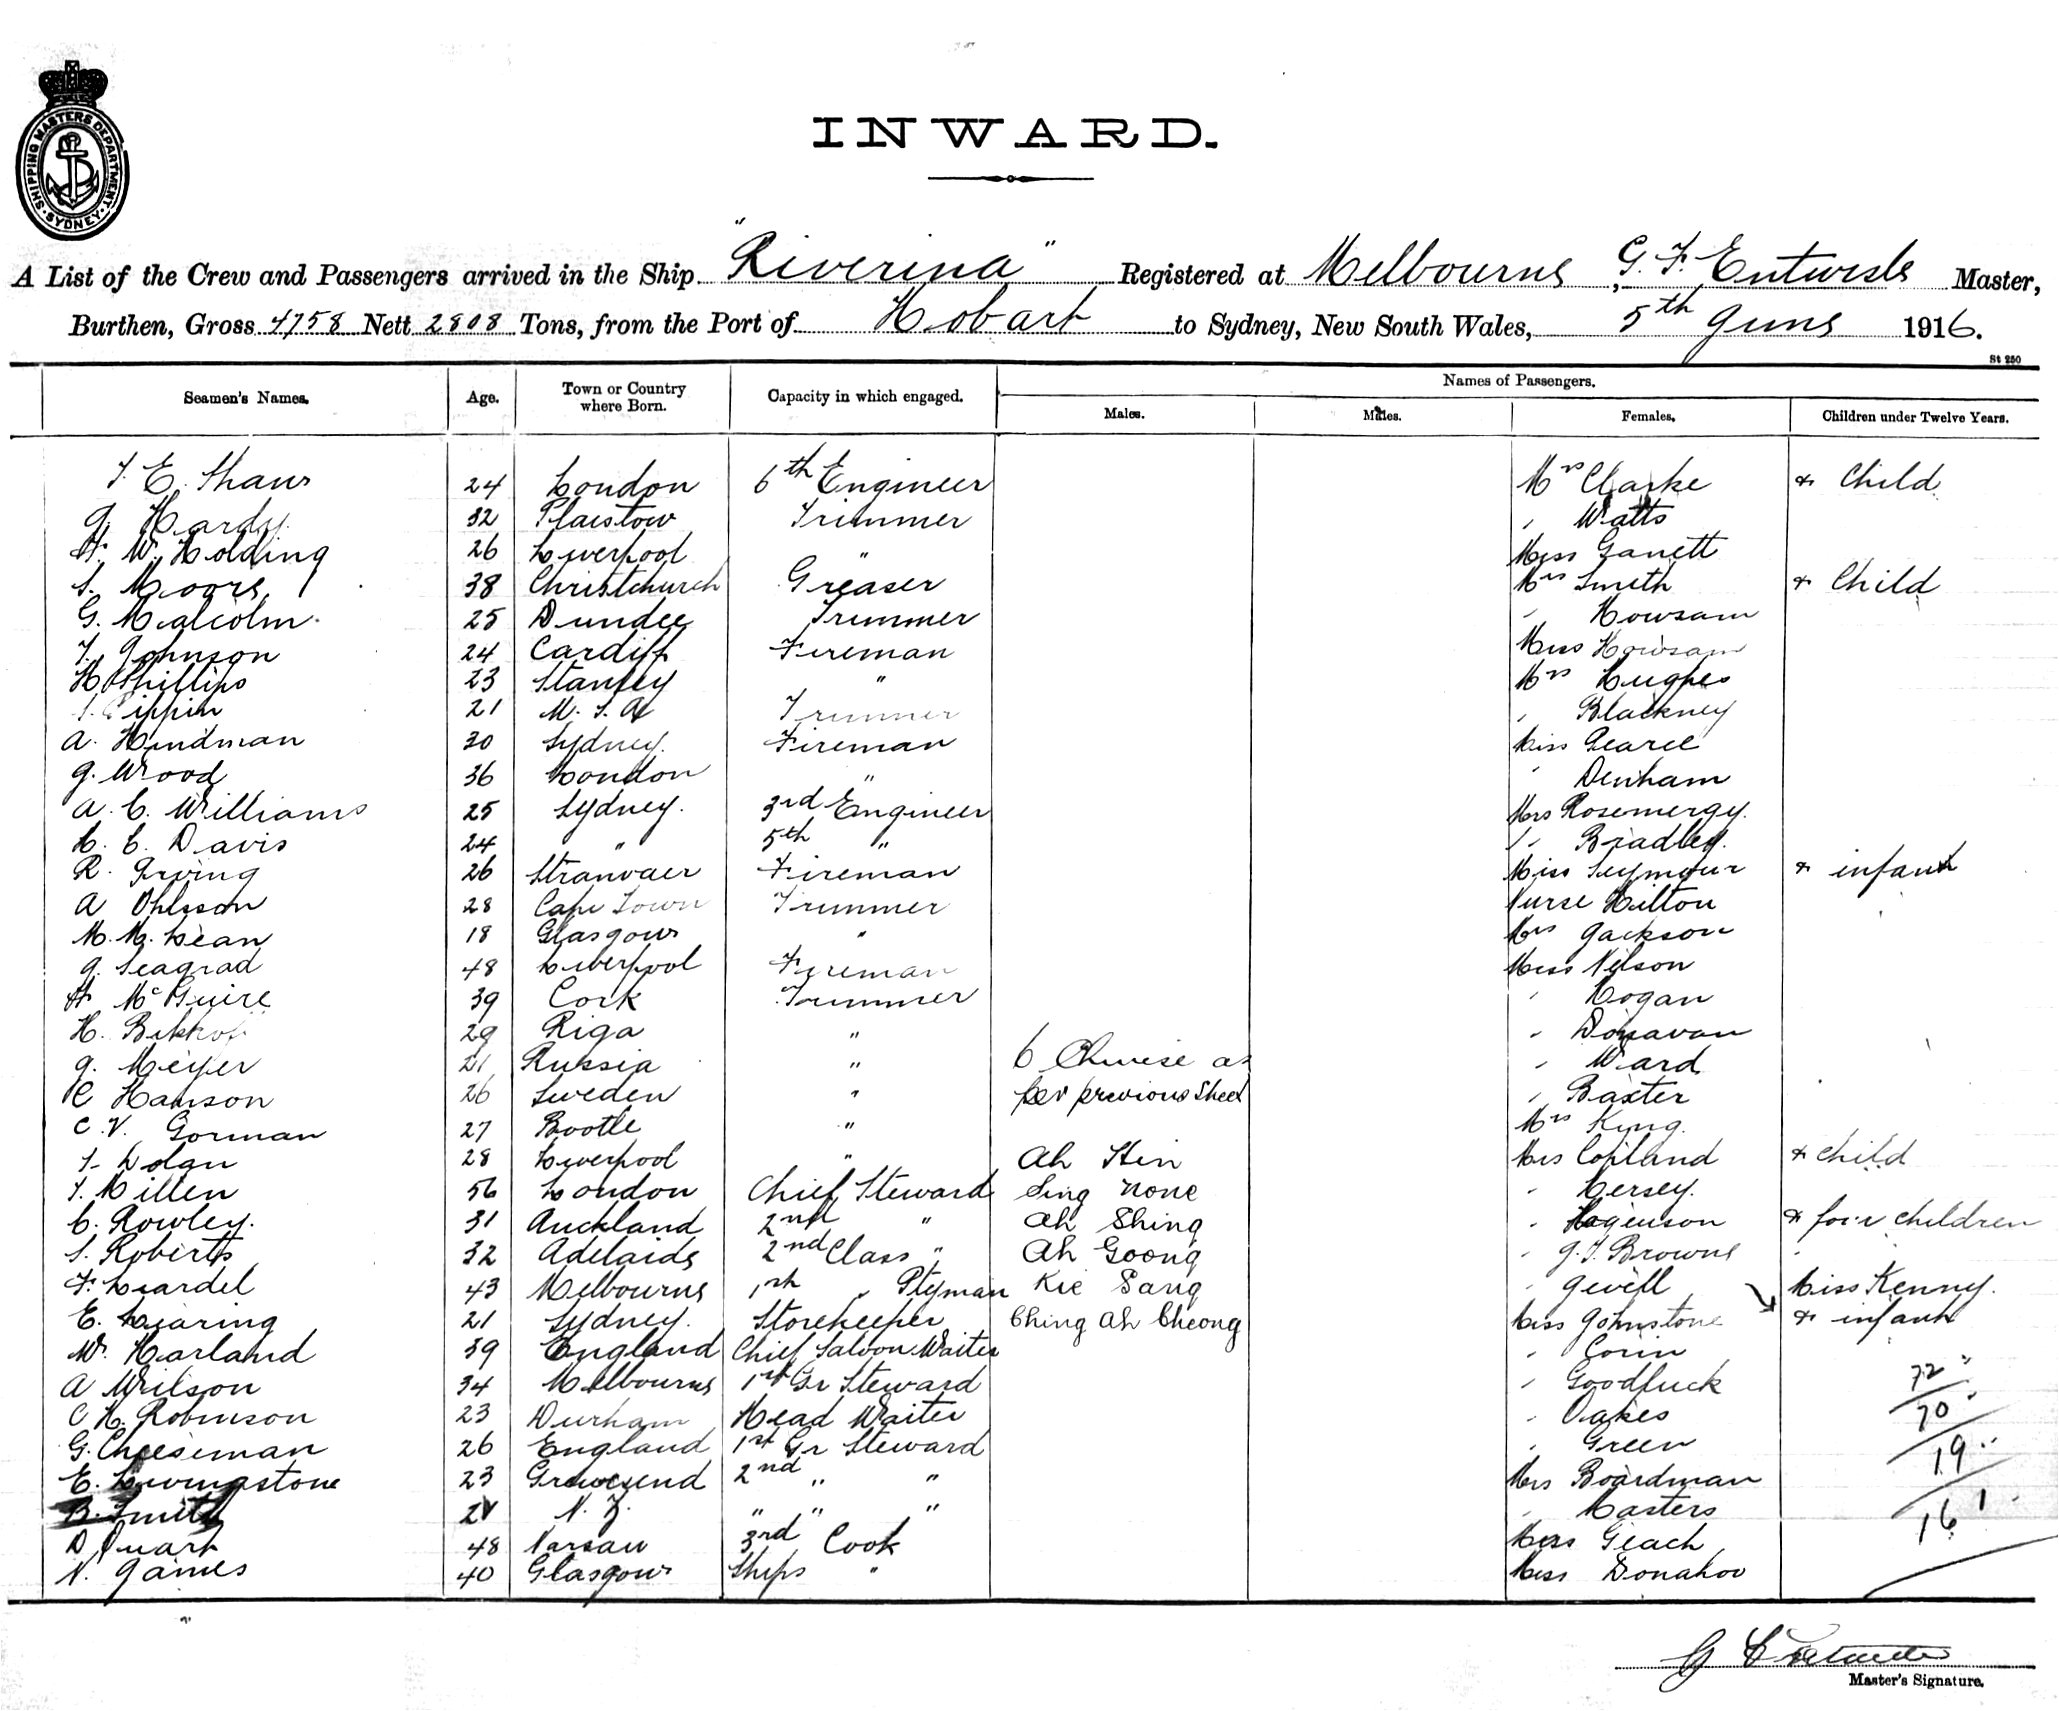 SHIPPING MASTERS DEPARTMENT
SYDNEY
INWARD.
A List of the Crew and Passengers arrived in the Ship "Riverina" Registered at Melbourne, G. F. Entwisle Master,
Burthen, Gross 4758 Nett 2808 Tons, from the Port of Hobart to Sydney, New South Wales, 5th June 1916.
St 250
Seamen's Names. Age. Town or Country where Born. Capacity in which engaged. Names of Passengers.
Males. Males. Females. Children under Twelve Years.
T. E. Shaw 24 London 6th Engineer Mrs Clarke & Child
J. Hardy 32 Plaistow Trimmer " Watts
H. W. Holding 26 Liverpool " Miss Garrett
S. Moore 38 Christchurch Greaser Mrs Smith & Child
G. Malcolm 25 Dundee Trimmer " Howsam
T. Johnson 24 Cardiff Fireman Miss Howsam
H. Phillips 23 Stanley " Mrs Hughes
Pippin 21 Trimmer " Blackney
A. Hindman 30 Sydney. Fireman Miss Pearce
J. Wood 36 London " " Denham
A. C. Williams 25 Sydney. 3rd Engineer Mrs Rosemergy.
C. C. Davis 24 " 5th " " Bradley.
R. Irving 26 Stranraer Fireman Miss Seymour & infant
A Ohlsson 28 Cape Town Trimmer Nurse Hilton
M. McLean 18 Glasgow " Mrs Jackson
J. Seagrad 48 Liverpool Fireman Miss Nelson
H. McGuire 39 Cork Trimmer " Hogan
H. 29 Riga " " Donavan
J. Meyer 21 Russia " 6 Chinese as " Ward
C Hanson 26 Sweden " per previous Sheet " Baxter
C. V. Gorman 27 Bootle " Mrs King.
T. Dolan 28 Liverpool " Ah Hin Mrs Copland & child
T. Millen 56 London Chief Steward Sing None " Hersey.
C. Rowley. 31 Auckland 2nd " Ah Shing " Hogenson & four children
S. Roberts 32 Adelaide 2nd Class " Ah Goong " J. T. Browne
F. Liardet 43 Melbourne 1st " Ptyman Kie Sang " Jewell Miss Kenny.
E. Waring 21 Sydney. Storekeeper Ching Ah Cheong Miss Johnstone & infant
W. Harland 39 England Chief Saloon Waiter " Corin
A Wilson 34 Melbourne 1st Gr Steward " Goodluck 72
C H. Robinson 23 Durham Head Waiter " Oakes 70
G. Cheeseman 26 England 1st Gr Steward " Green 19
E. Livingstone 23 Gravesend 2nd " " Mrs Boardman
B. Smith 21 N. Z. " " " " Masters 161
D. Duart 48 3rd Cook Miss Geach
N. James 40 Glasgow Ships " Miss Donahoo
Master's Signature.